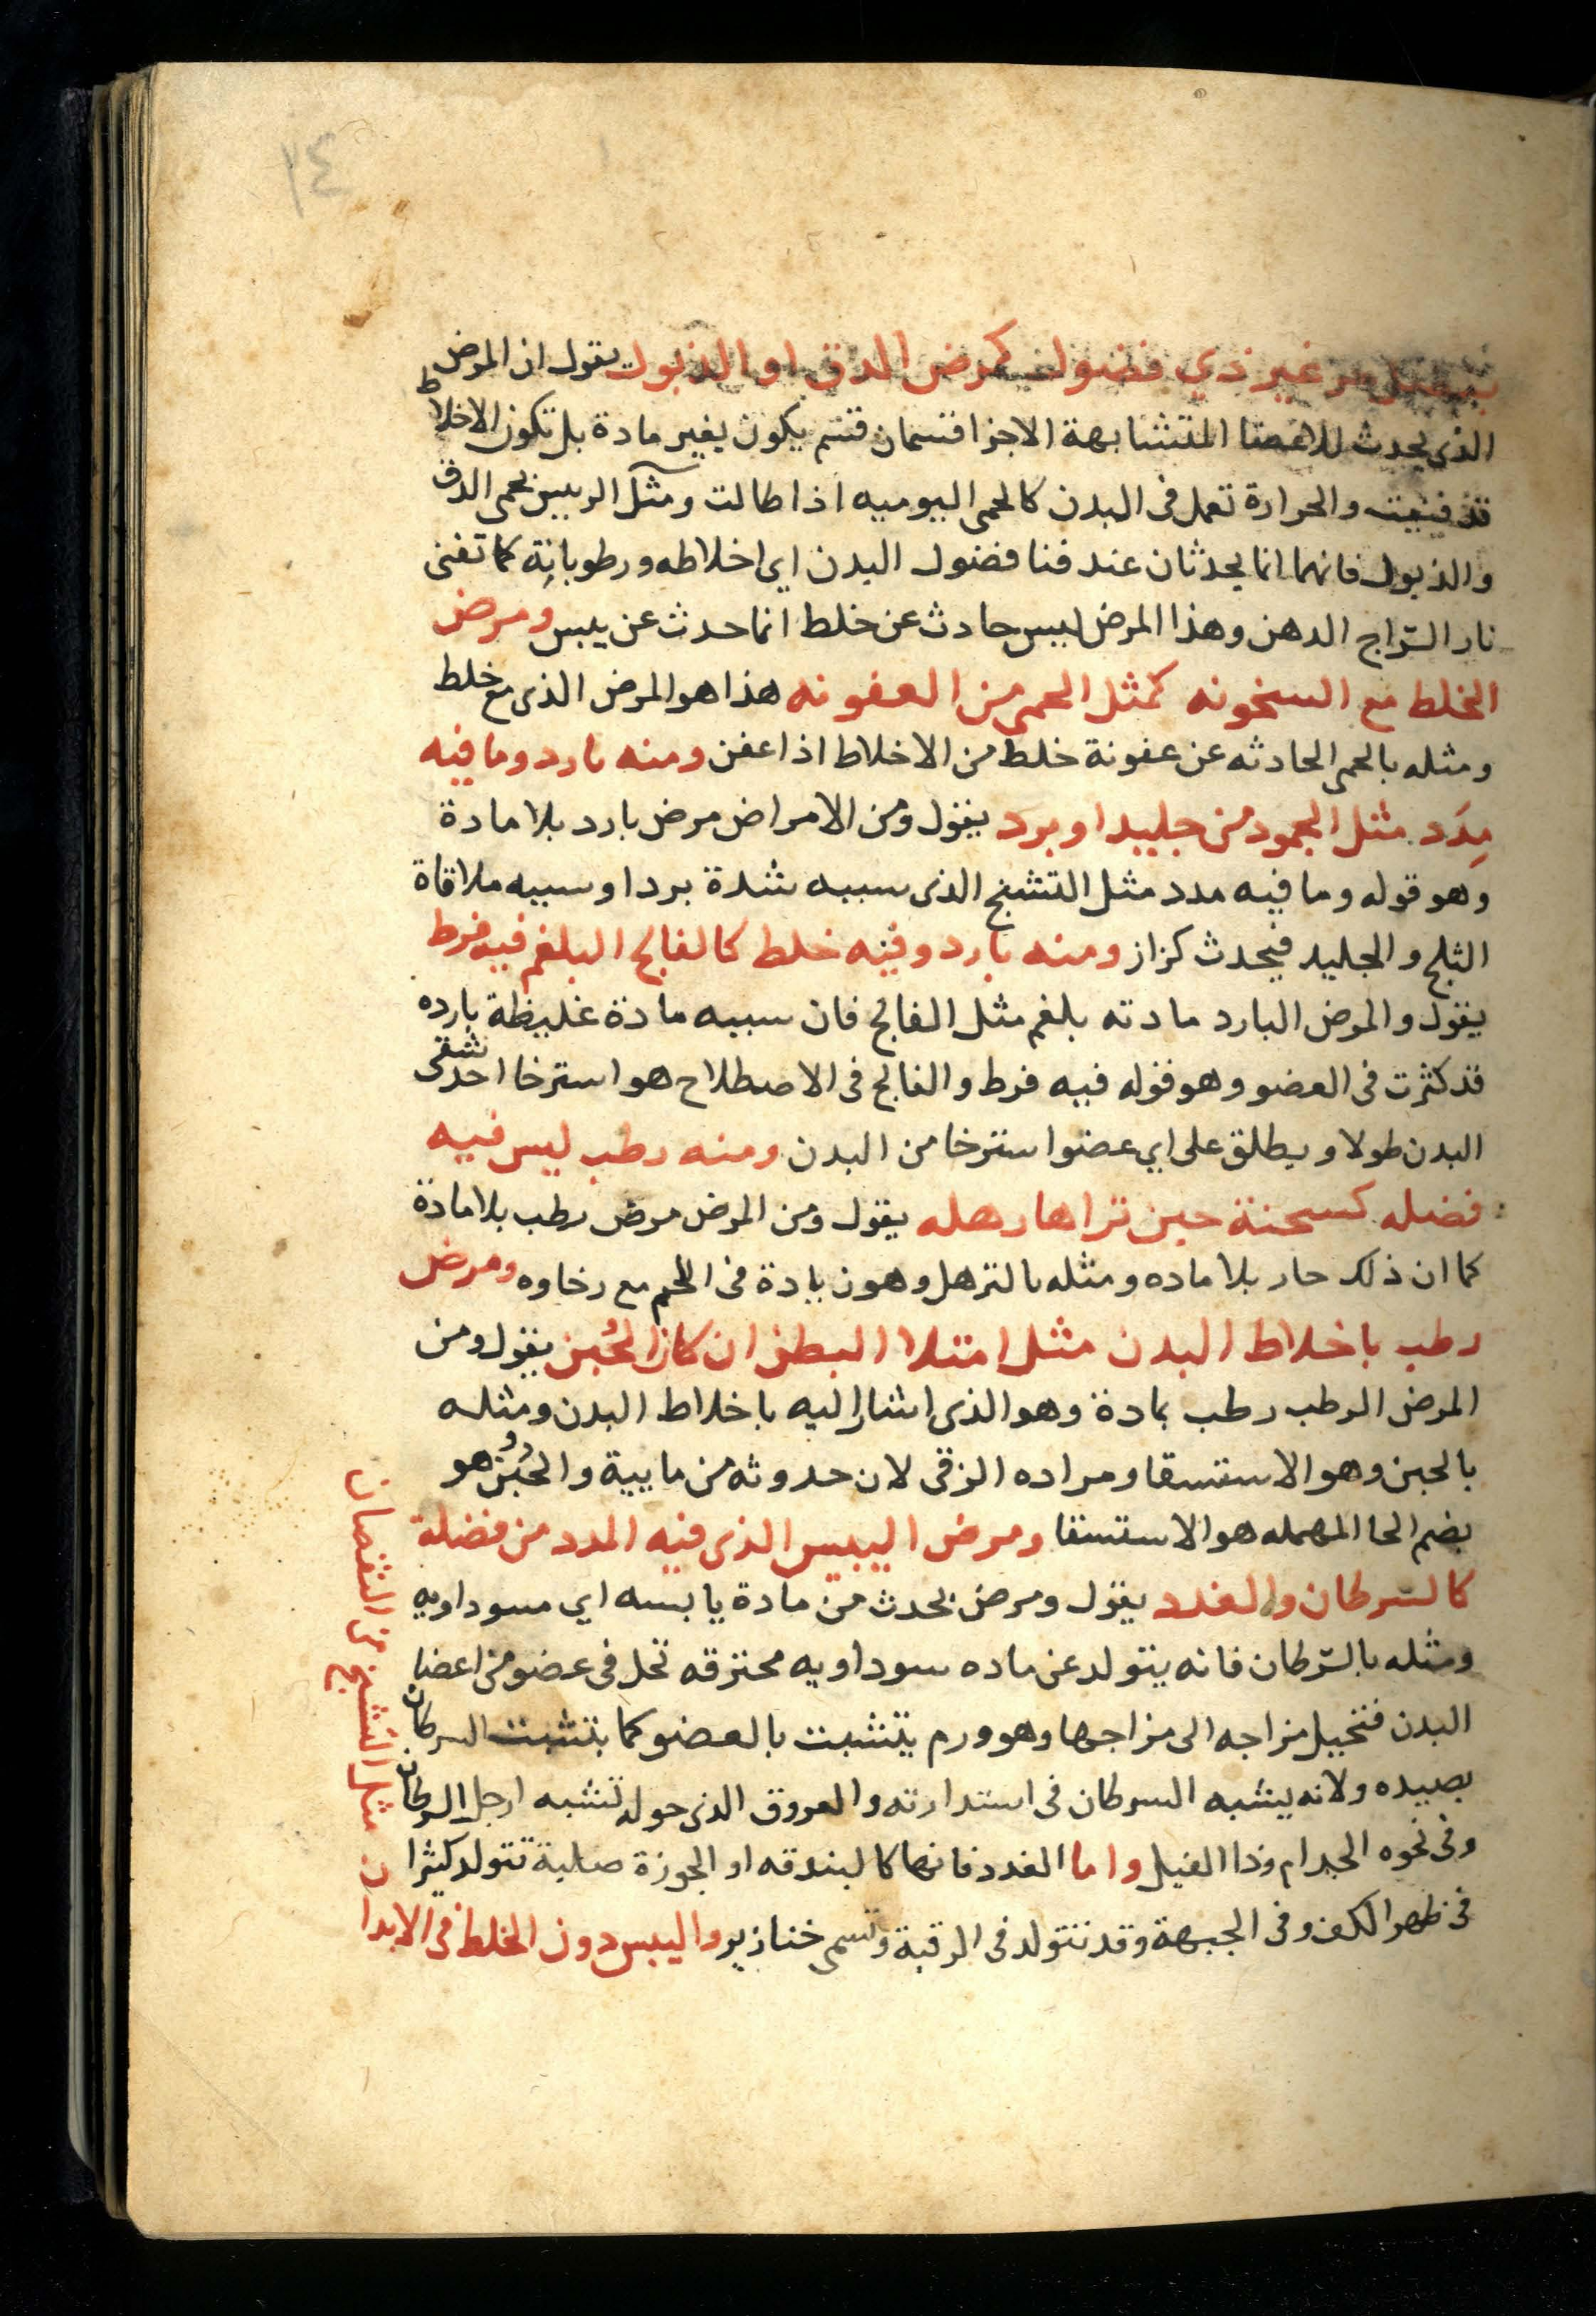 ١٤
غير ذي فضول كمرض الدق او الذبول يقول ان المرض
الذي يحدث للاعضا المتشابهة الاجزا قسمان قسم يكون بغير مادة بل تكون الاخلاط
قد فنيت والحرارة تعمل فى البدن كالحمى اليوميه اذا طالت ومثل الرييس بحمى الدق
والذبول فانهما انما يحدثان عند فنا فضول البدن اي اخلاطه ورطوباته كما تفنى
نار السّراج الدهن وهذا المرض ليس حادث عن خلط انما حدث عن يبس ومرض
الخلط مع السخونه كمثل الحمى من العفونه هذا هو المرض الذى مع خلط
ومثله بالحمى الحادثه عن عفونة خلط من الاخلاط اذا عفن ومنه بارد وما فيه
مِدَد مثل الجمود من جليد او برد يقول ومن الامراض مرض بارد بلا مادة
وهو قوله وما فيه مدد مثل التشنج الذى سببه شدة برد او سببه ملاقاة
الثلج والجليد فيحدث كزاز ومنه بارد وفيه خلط كالفالج البلغم فيه فرط
يقول والمرض البارد مادته بلغم مثل الفالج فان سببه مادة غليظة بارده
قد كثرت فى العضو وهو قوله فيه فرط والفالج فى الاصطلاح هو استرخا احد شقى
البدن طولا ويطلق على اي عضو استرخا من البدن ومنه رطب ليس فيه
فضله كسحنة حين تراها رهله يقول ومن المرض مرض رطب بلا مادة
كما ان ذلك حار بلا ماده ومثله بالترهل وهو زيادة فى اللحم مع رخاوه ومرض
رطب باخلاط البدن مثل امتلا البطن ان كان الحُبن يقول ومن
المرض الرطب رطب بمادة وهو الذى اشار اليه باخلاط البدن ومثله
بالحبن وهو الاستسقا ومراده الزقى لان حدوثه من مايية والحُبُن هو
بضم الحا المهمله هو الاستسقا ومرض اليبيس الذى فيه المدد من فضلة
كالسّرطان والغدد يقول ومرض يحدث من مادة يابسه اي سوداويه
ومثله بالسّرطان فانه يتولد عن ماده سوداويه محترقه تحل فى عضو من اعضا
البدن فتحيل مزاجه الى مزاجها وهو ورم يتشبت بالعضو كما يتشبت السرطان
بصيده ولانه يشبه السرطان فى استدارته والعروق الذى حوله تشبه ارجل السرطان
وفى نحوه الجدام وذا الفيل واما الغدد فانها كالبندقه او الجوزة صلبة تتولد كثيرا
فى ظهر الكف وفى الجبهة وقد تتولد فى الرقبة وتسمى خنازير واليبس دون الخلط فى الابدان
مثل التشنج من النقصان